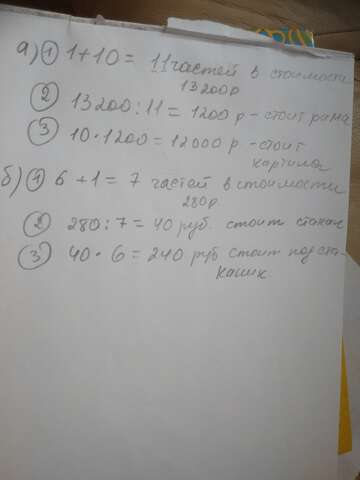 а) ① 1+10 = 11 частей в стоимости
13200р
② 13200:11 = 1200 р - стоит рама
③ 10·1200 = 12000 р - стоит
картина
б) ① 6 + 1 = 7 частей в стоимости
280р.
② 280:7 = 40 руб. стоит стакан
③ 40·6 = 240 руб стоит подста-
каник